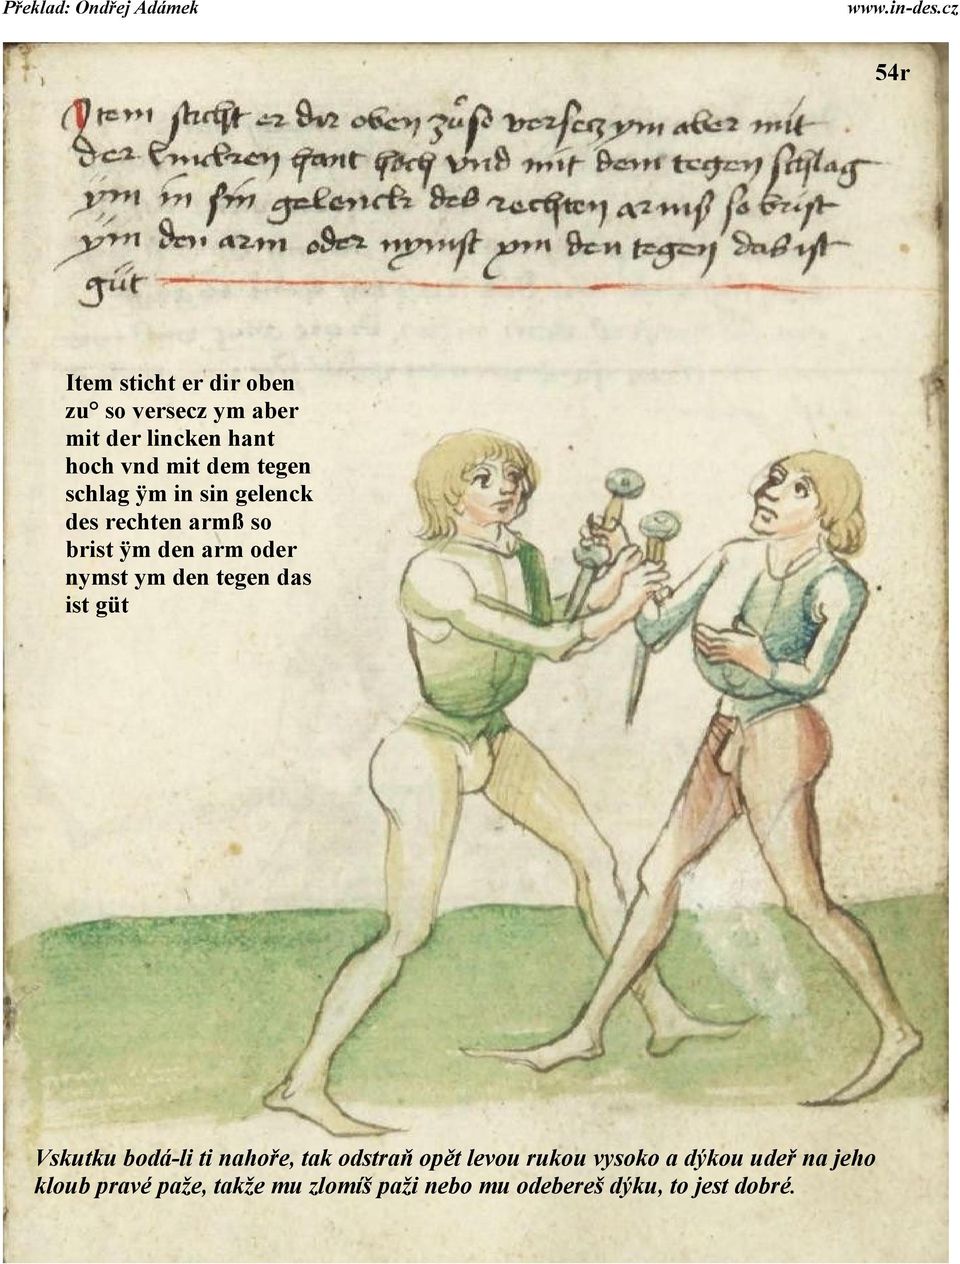 Překlad: Ondřej Adámek
www.in-des.cz
54r
Item sticht er dir oben zů so versecz ym aber mit
der lincken hant hoch vnd mit dem tegen schlag
ÿm in sin gelenck des rechten armß so brist
ÿm den arm oder nymst ym den tegen das ist
güt
Item sticht er dir oben
zu° so versecz ym aber
mit der lincken hant
hoch vnd mit dem tegen
schlag ÿm in sin gelenck
des rechten armß so
brist ÿm den arm oder
nymst ym den tegen das
ist güt
Vskutku bodá-li ti nahoře, tak odstraň opět levou rukou vysoko a dýkou udeř na jeho
kloub pravé paže, takže mu zlomíš paži nebo mu odebereš dýku, to jest dobré.